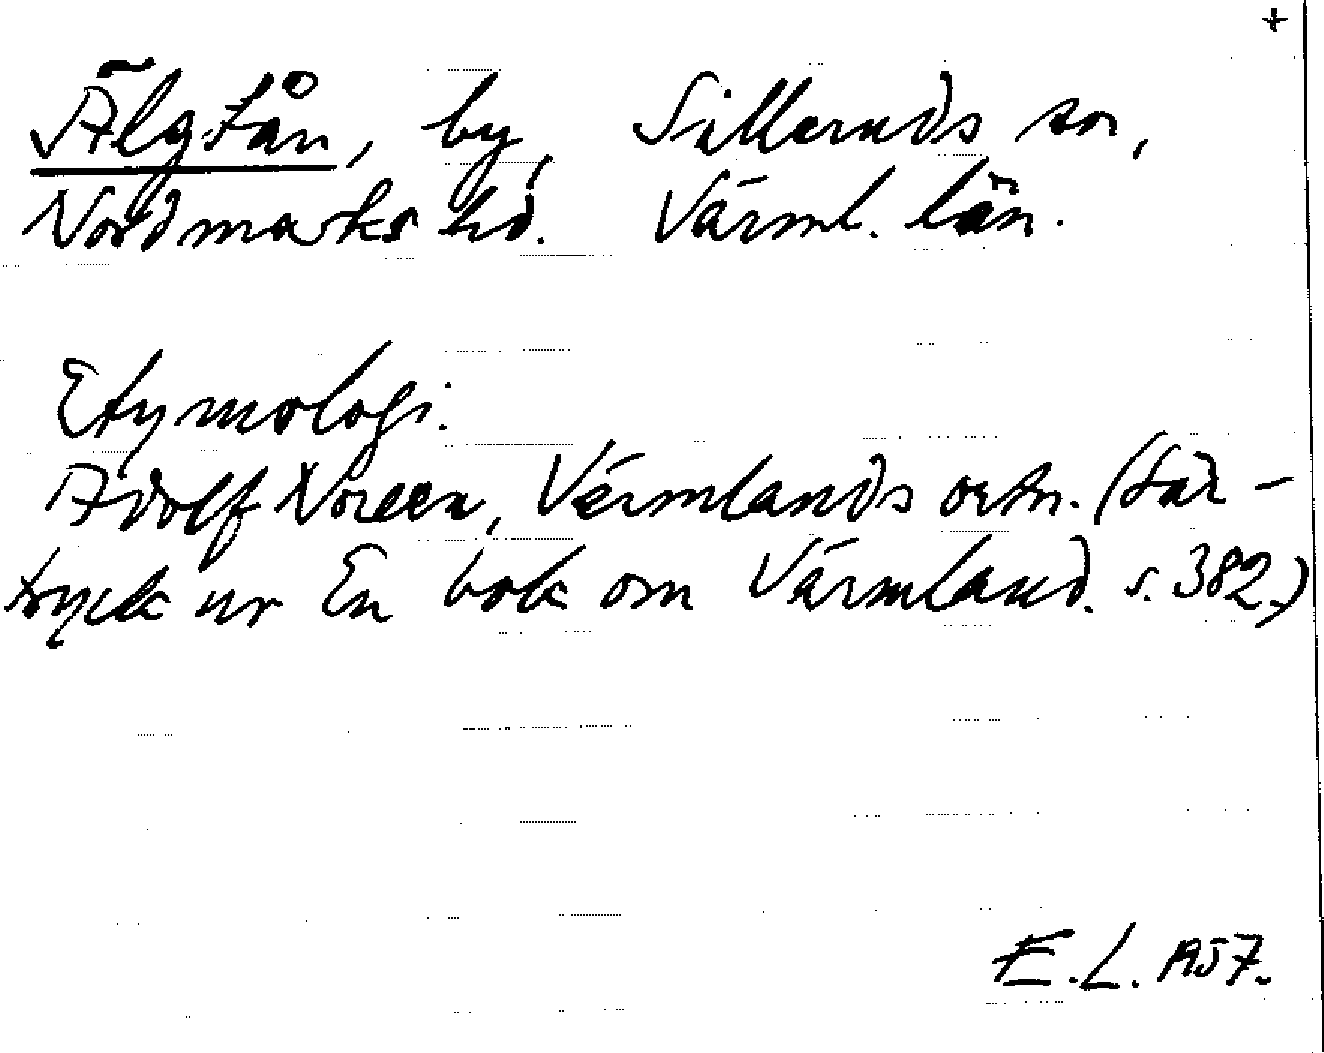 +
Älgtån, by, Silleruds sn,
Nordmarks hd. Värml. län.
Etymologi.
Adolf Noreen, Värmlands ortn. (Sär-
tryck ur En bok om Värmland. s. 382.)
E.L. 1957.